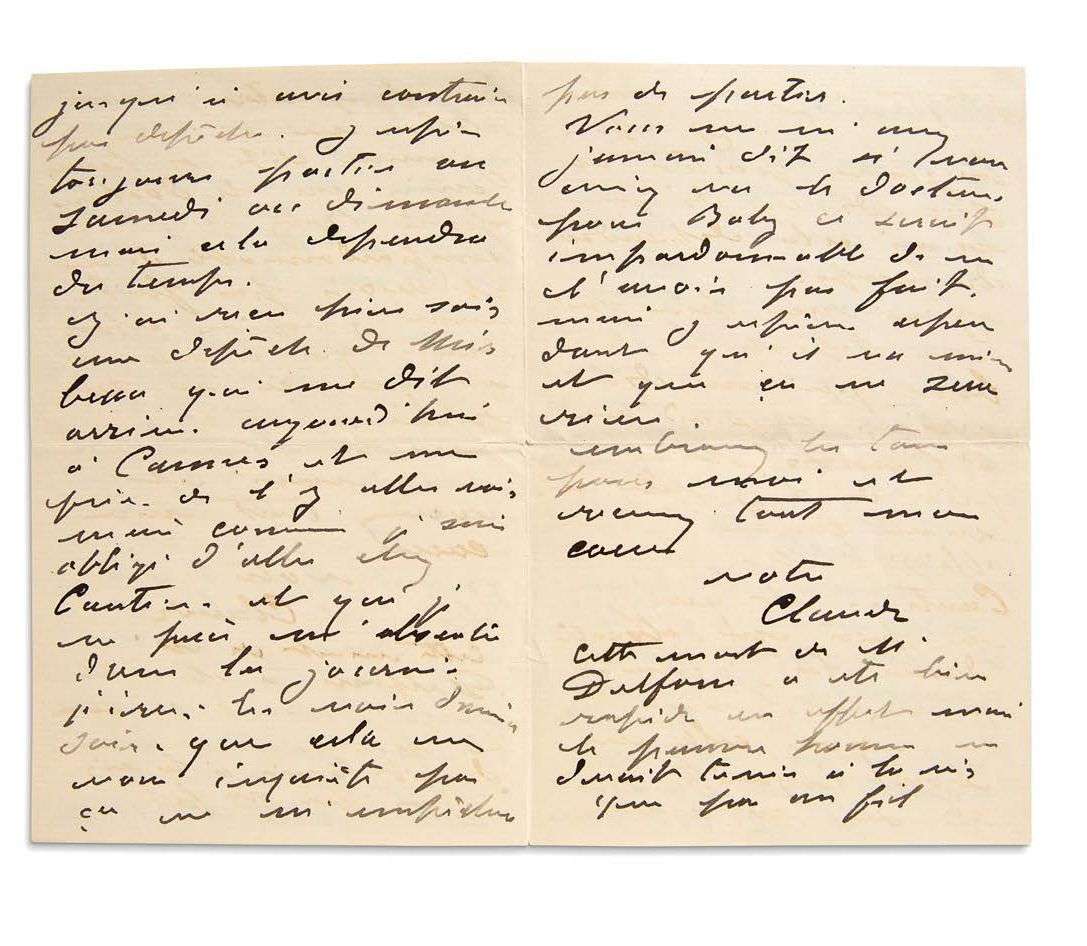 jusqu'ici avis contraire
par dépêche. J'espère
toujours partir ou
samedi ou dimanche
mais cela dépendra
du temps.
J'ai reçu hier soir
une dépêche de Mir
beau qui me dit
arriver aujourd'hui
à Cannes et me
prie de l'y aller voir
mais comme je suis
obligé d'aller chez
Cantin. et que je
ne puis m'absenter
dans la journée
j'irai les voir demain
soir. que cela ne
vous inquiète pas
ça ne m'empêchera
pas de partir.
Vous ne m'avez
jamais dit si vous
aviez vu le docteur
pour Baby ce serait
impardonnable de ne
l'avoir pas fait.
mais j'espère cepen
dant qu'il va mieux
et que ça ne sera
rien.
embrassez les tous
pour moi et
recevez tout mon
coeur
votre
Claude
cette mort de M.
Delfons a été bien
rapide en effet mais
le pauvre homme ne
devait tenir à la vie
que par un fil